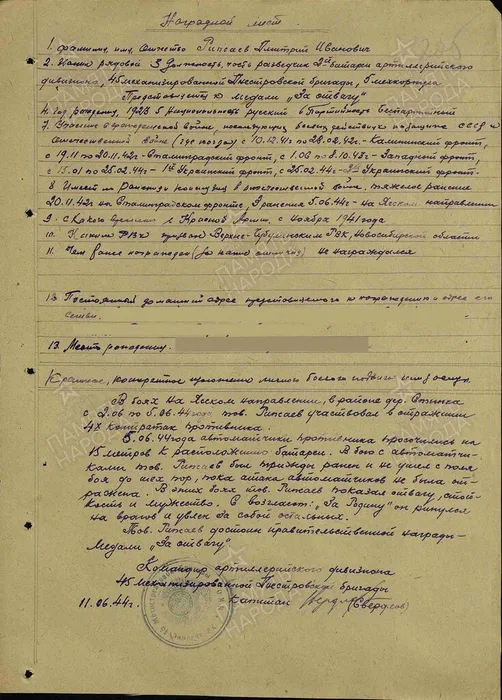 Наградной лист
1. Фамилия, имя, отчество Рипсаев Дмитрий Иванович
2. Звание рядовой 3 Должность, часть разведчик 2й батареи артиллерийского
дивизиона, 45 механизированной Днестровской бригады, 5 мехкорпуса
Представляется к медали „За отвагу"
4. Год рождения, 1923 5 Национальность русский 6 Партийность беспартийный
7. Участие в гражданской войне, последующих боевых действиях по защите СССР и
отечественной войне (где, когда) с 10.12.41 по 28.02.42г. - Калининский фронт,
с 19.11 по 20.11.42г - Сталинградский фронт, с 1.06 по 8.10.43г - Западный фронт,
с 15.01 по 25.02.44г - 1й Украинский фронт, с 25.02.44г - 2й Украинский фронт.
8 Имеет ли ранения и контузии в отечественной войне, тяжелое ранение
20.11.42г на Сталинградском фронте, 3 ранения 5.06.44г - на Ясском направлении
9. С какого времени в Красной Армии, с ноября 1941 года
10. Каким РВК призван Верхне- РВК, Новосибирской области
11. Чем ранее награжден (за какие отличия) не награждался
12. Постоянный домашний адрес представляемого к награждению и адрес его
семьи.
13. Место рождения.
Краткое, конкретное изложение личного боевого подвига или заслуг.
В боях на Ясском направлении, в районе дер. Стынка
с 2.06 по 5.06.44 года тов. Рипсаев участвовал в отражении
4х контратак противника.
5.06.44 года автоматчики противника просочились на
15 метров к расположению батареи. В бою с автоматчи-
ками тов. Рипсаев был трижды ранен и не ушел с поля
боя до тех пор, пока атака автоматчиков не была от-
ражена. В этих боях тов. Рипсаев показал отвагу, стой-
кость и мужество. С возгласом: „За Родину" он ринулся
на врагов и увлек за собой остальных.
Тов. Рипсаев достоин правительственной награды-
Медали „За отвагу"
Командир артиллерийского дивизиона
45 механизированной Днестровской бригады
11.06.44г. капитан (Свердлов)
ПАМЯТЬ НАРОДА